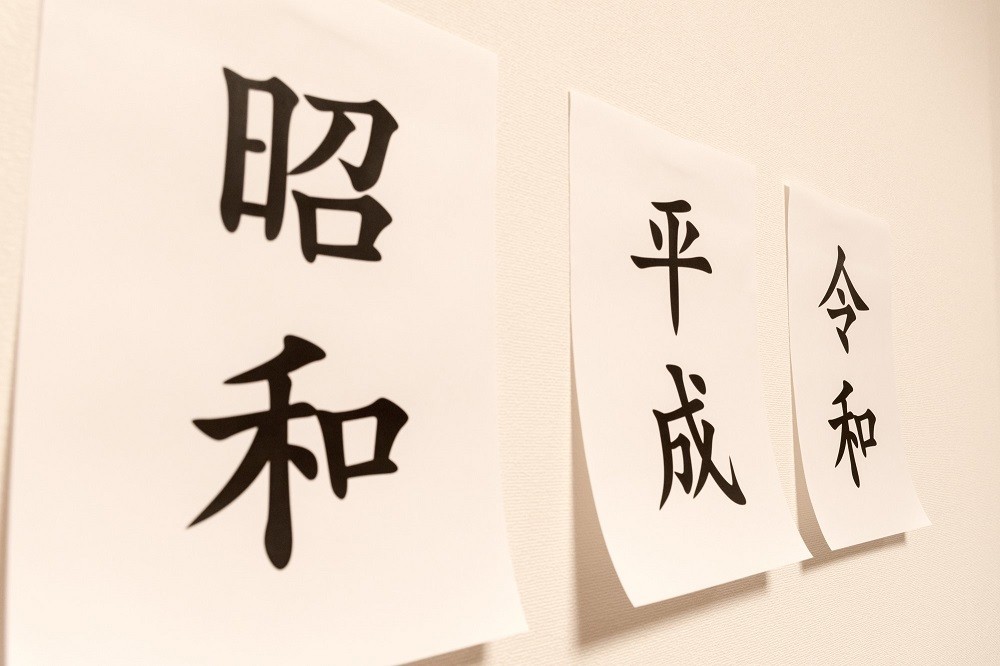 昭和
平成
令和